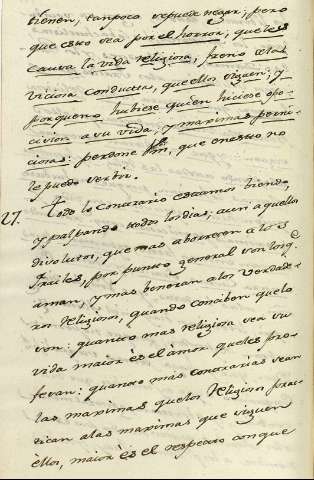 tienen, tampoco se puede negar; pero
que esto sea por el horror, que les
causa la vida religiosa, freno de la
viciosa conducta, que ellos siguen; y
porque no hubiese quien hiciese opo-
sicion a su vida, y maximas perni-
ciosas: perdone que en esto no
le puedo servir.
27. Todo lo contrario estamos biendo,
y palpando todos los dias; aun aquellos
disolutos, que mas aborrecen a los
frailes, por punto general son los q.e
aman, y mas beneran a los verdade-
ros religiosos, quando conciben que lo
son: quanto mas religiosa sea su
vida maior es el amor que les pro-
fesan: quanto más contrarias sean
las maximas que los religiosos prac-
tican a las maximas que siguen
ellos, maior es el respecto con que